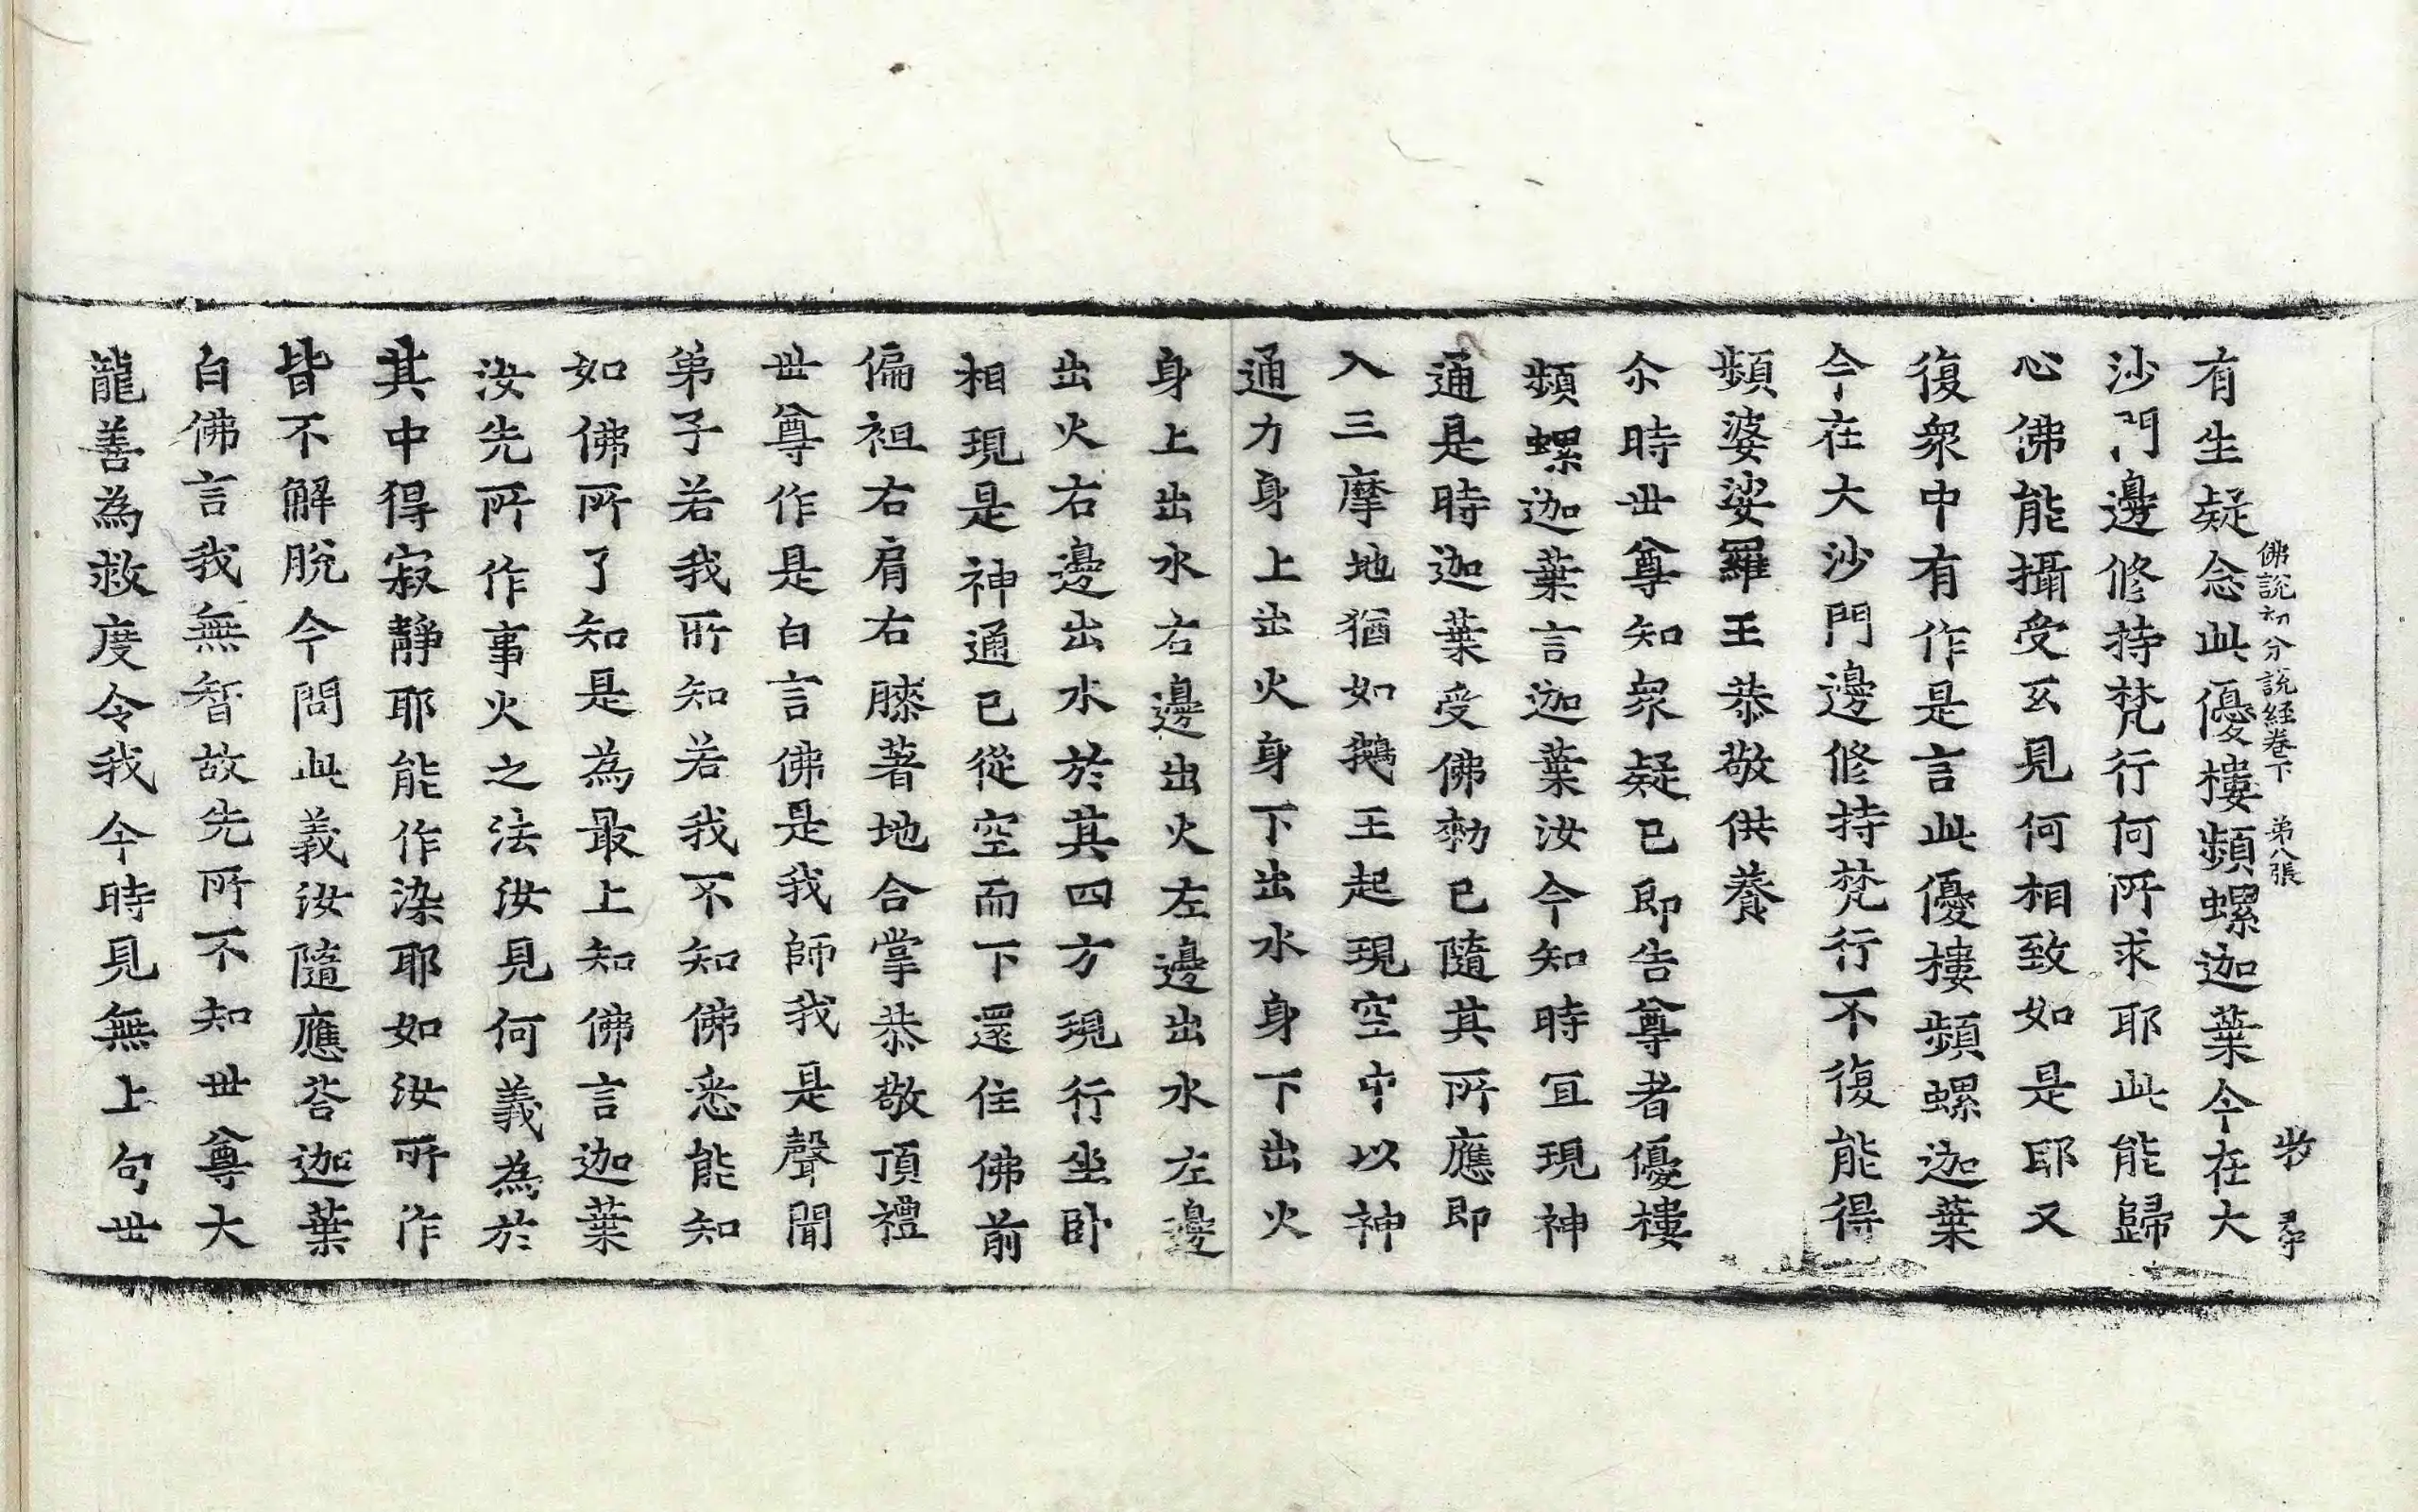 有生疑念此優樓頻螺迦葉今在大
佛說初分說経卷下 苐八張
沙門邊修持梵行何所求耶此能歸
心佛能攝受玄見何相致如是耶又
復衆中有作是言此優樓頻螺迦葉
今在大沙門邊修持梵行不復能得
頻婆娑羅王恭敬供養
尒時世尊知衆疑已即告尊者優樓
頻螺迦葉言迦葉汝今知時宜現神
通是時迦葉受佛勑已隨其所應即
入三摩地猶如鵝王起現空中以神
通力身上出火身下出水身下出火
身上出水右邊出火左邊出水左邊
出火右邊出水於其四方現行坐卧
相現是神通已從空而下還住佛前
偏袒右肩右膝著地合掌恭敬頂禮
世尊作是白言佛是我師我是聲聞
弟子若我所知若我不知佛悉能知
如佛所了知是為最上知佛言迦葉
汝先所作事火之法汝見何義為於
其中得寂靜耶能作染耶如汝所作
皆不解脫今問此義汝隨應荅迦葉
白佛言我無智故先所不知世尊大
龍善為救度令我今時見無上句世